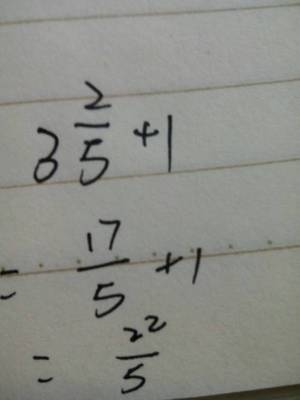 3 2/5 +1
= 17/5 +1
= 22/5